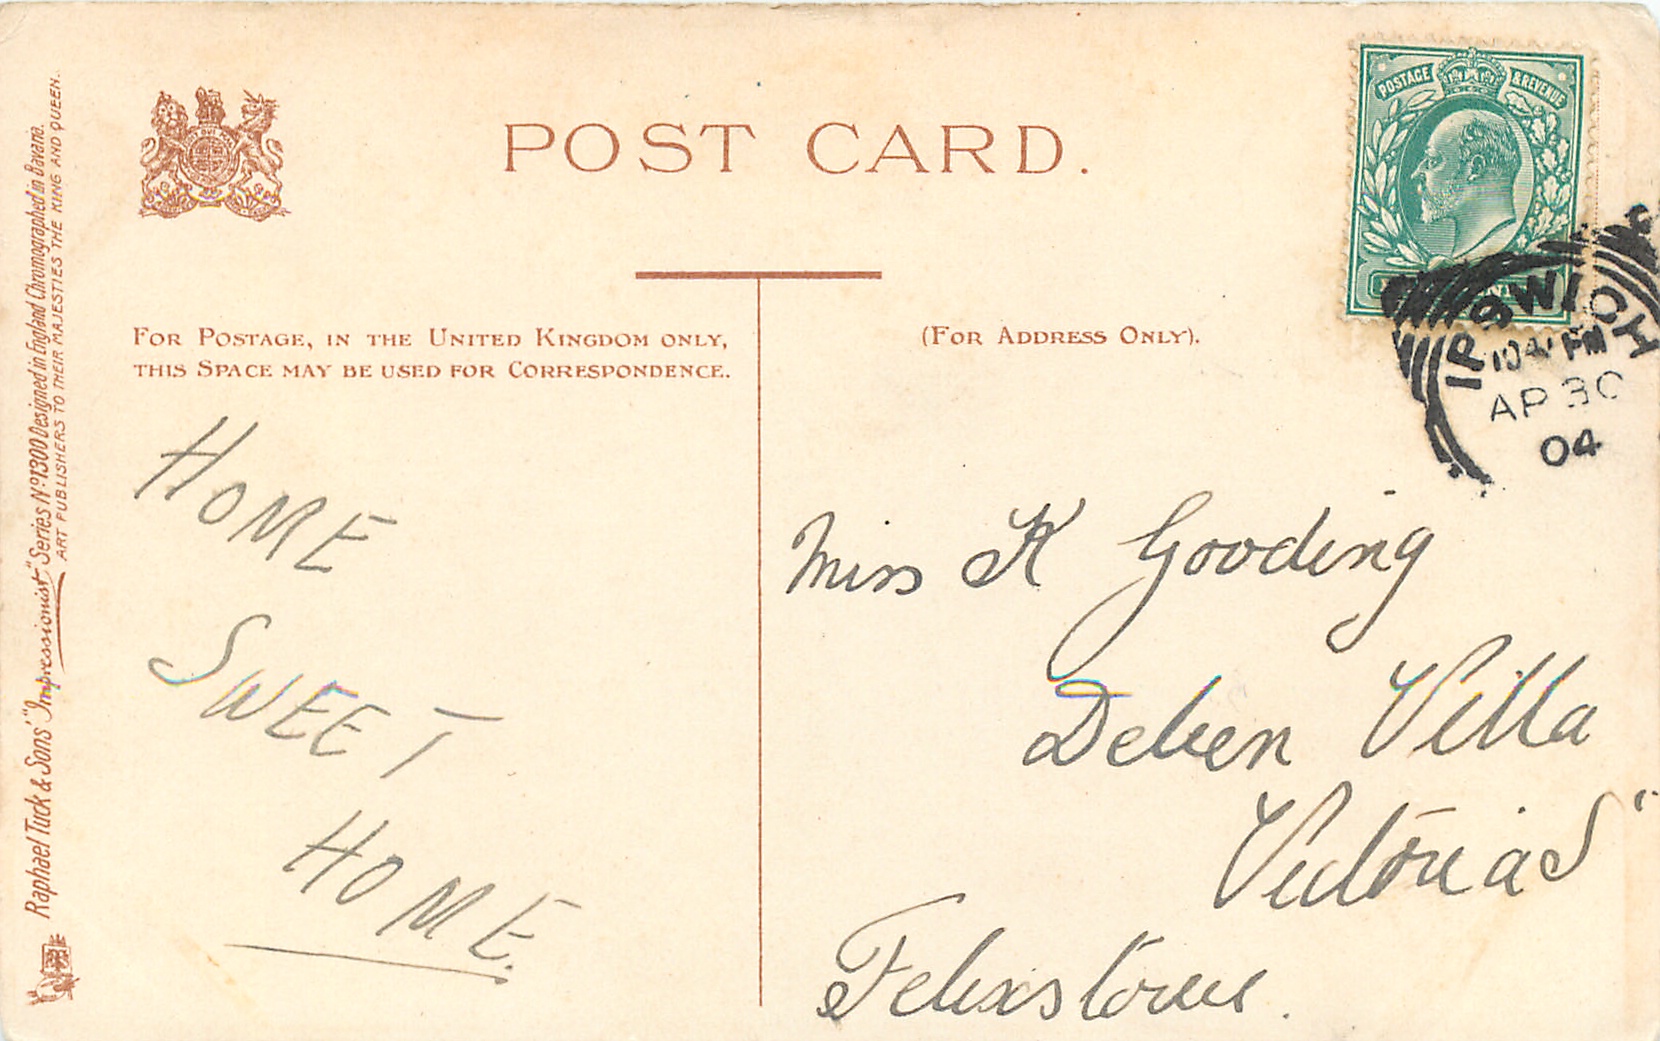 POST CARD.
POSTAGE & REVENUE
IPSWICH
PM
AP 30
04
FOR POSTAGE, IN THE UNITED KINGDOM ONLY,
THIS SPACE MAY BE USED FOR CORRESPONDENCE.
(FOR ADDRESS ONLY).
HOME
SWEET
HOME.
Miss K Gooding
Deben Villa
Victoria S
Felixstowe.
Raphael Tuck & Sons' "Impressionist" Series Nº 1300 Designed in England Chromographed in Bavaria.
ART PUBLISHERS TO THEIR MAJESTIES THE KING AND QUEEN.